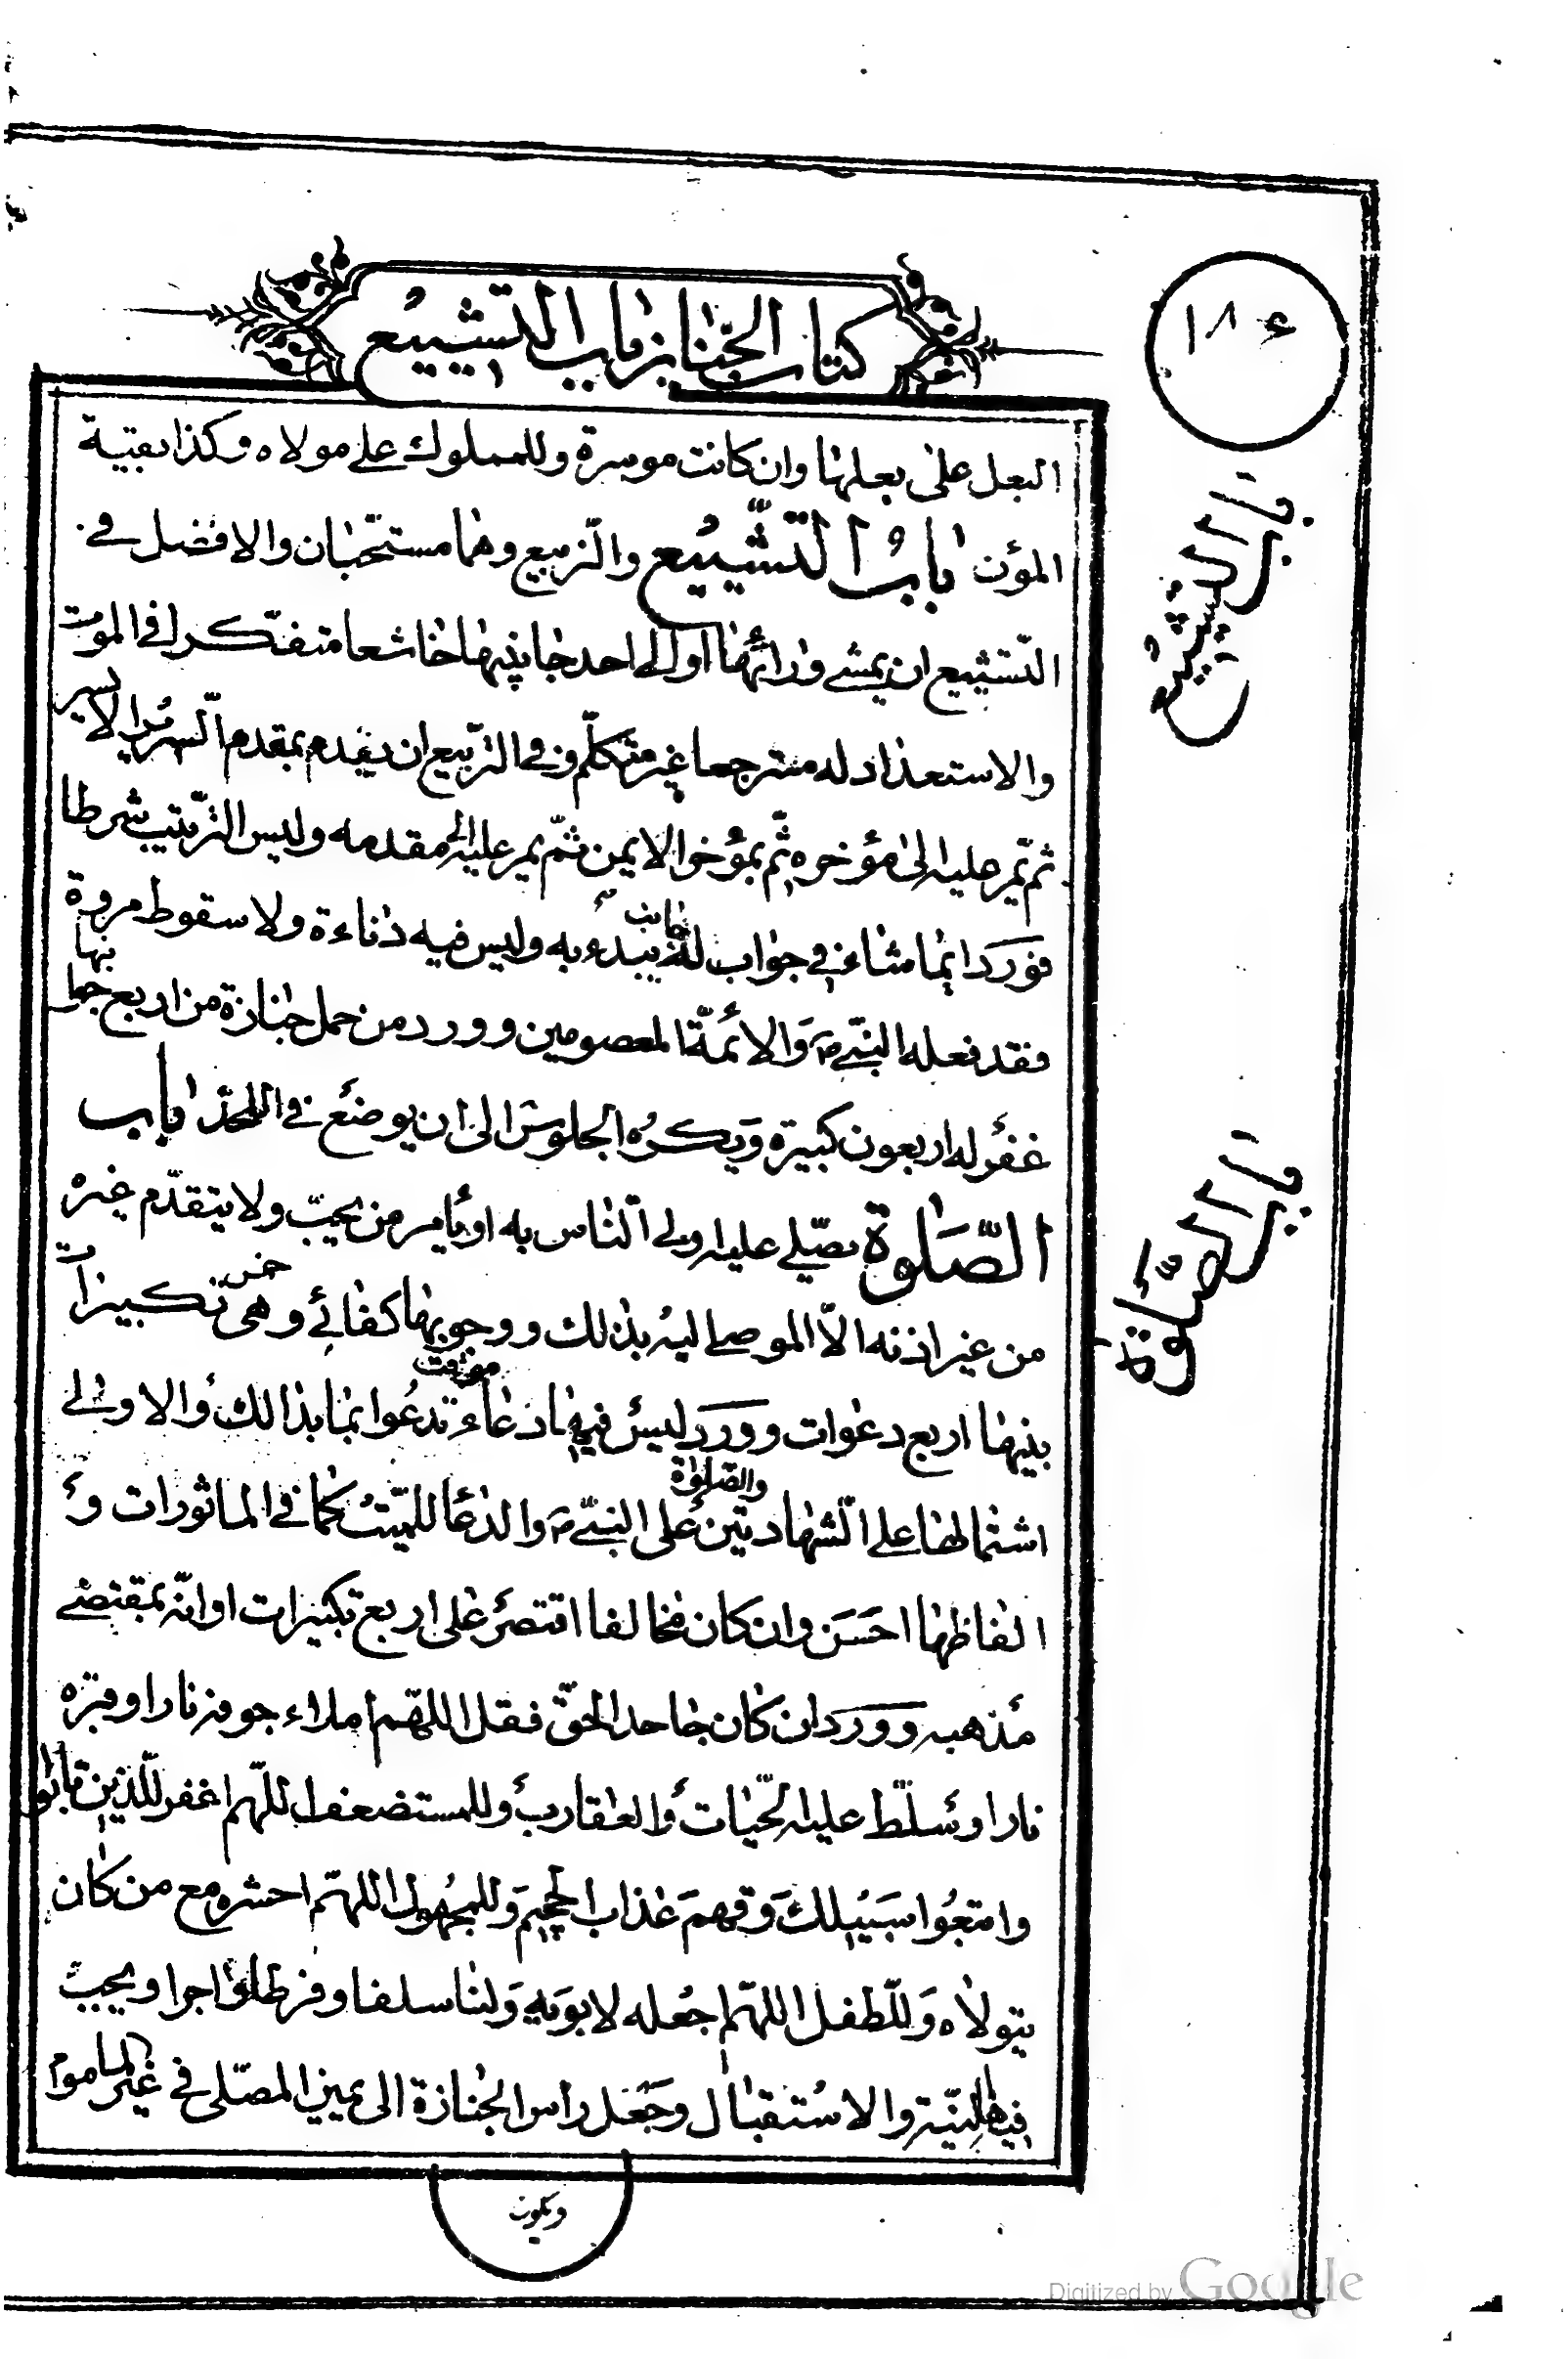 ١٨٤
كتاب الجنايز باب التشييع
البعل على بعلها وان كانت موسرة وللمملوك على مولاه وكذا بقية
المؤن باب التشييع والتربيع وهما مستحبان والافضل في
التشييع ان يمشي ورائها او الى احد جانبيها خاشعا متفكرا في الموت
والاستعداد له مسترجعا غير متكلم وفي التربيع ان يقدم بمقدم السرير الايسر
ثم يمر عليه الى مؤخره ثم بمؤخر الايمن ثم يمر عليه الى مقدمه وليس الترتيب شرطا
فورد ايما شاء في جواب له يبدء به وليس فيه دناءة ولا سقوط مروة
فقد فعله النبي ص والائمة المعصومين وورد من حمل جنازة من اربع جوانبها
غفر له اربعون كبيرة ويكره الجلوس الى ان يوضع في اللحد باب
الصلوة يصلي عليه ولي الناس به او يامر من يحب ولا يتقدم غيره
من غير اذنه الا الموصى اليه بذلك ووجوبها كفائي وهي خمس تكبيرات
بينها اربع دعوات وورد ليس فيها دعاء موقت تدعوا بما بذالك والاولى
اشتمالها على الشهادتين والصلوة على النبي ص والدعا للميت كما في الماثورات و
الفاظها احسن وان كان مخالفا اقتصر على اربع تكبيرات او انه بمقتضى
مذهبه وورد ان كان جاحد الحق فقل اللهم املاء جوفه نارا وقبره
نارا وسلط عليه الحيات والعقارب وللمستضعف اللهم اغفر للذين تابوا
واتبعوا سبيلك وقهم عذاب الجحيم وللمجهول اللهم احشره مع من كان
يتولاه وللطفل اللهم اجعله لابويه ولنا سلفا وفرطا واجرا ويجب
فيها النية والاستقبال وجعل راس الجنازة الى يمين المصلى في غير الماموم
ويكون
باب التشييع
باب الصلوة
Digitized by Google